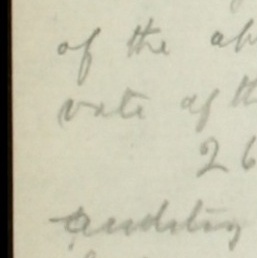 of the
vote of th
26
Auditing